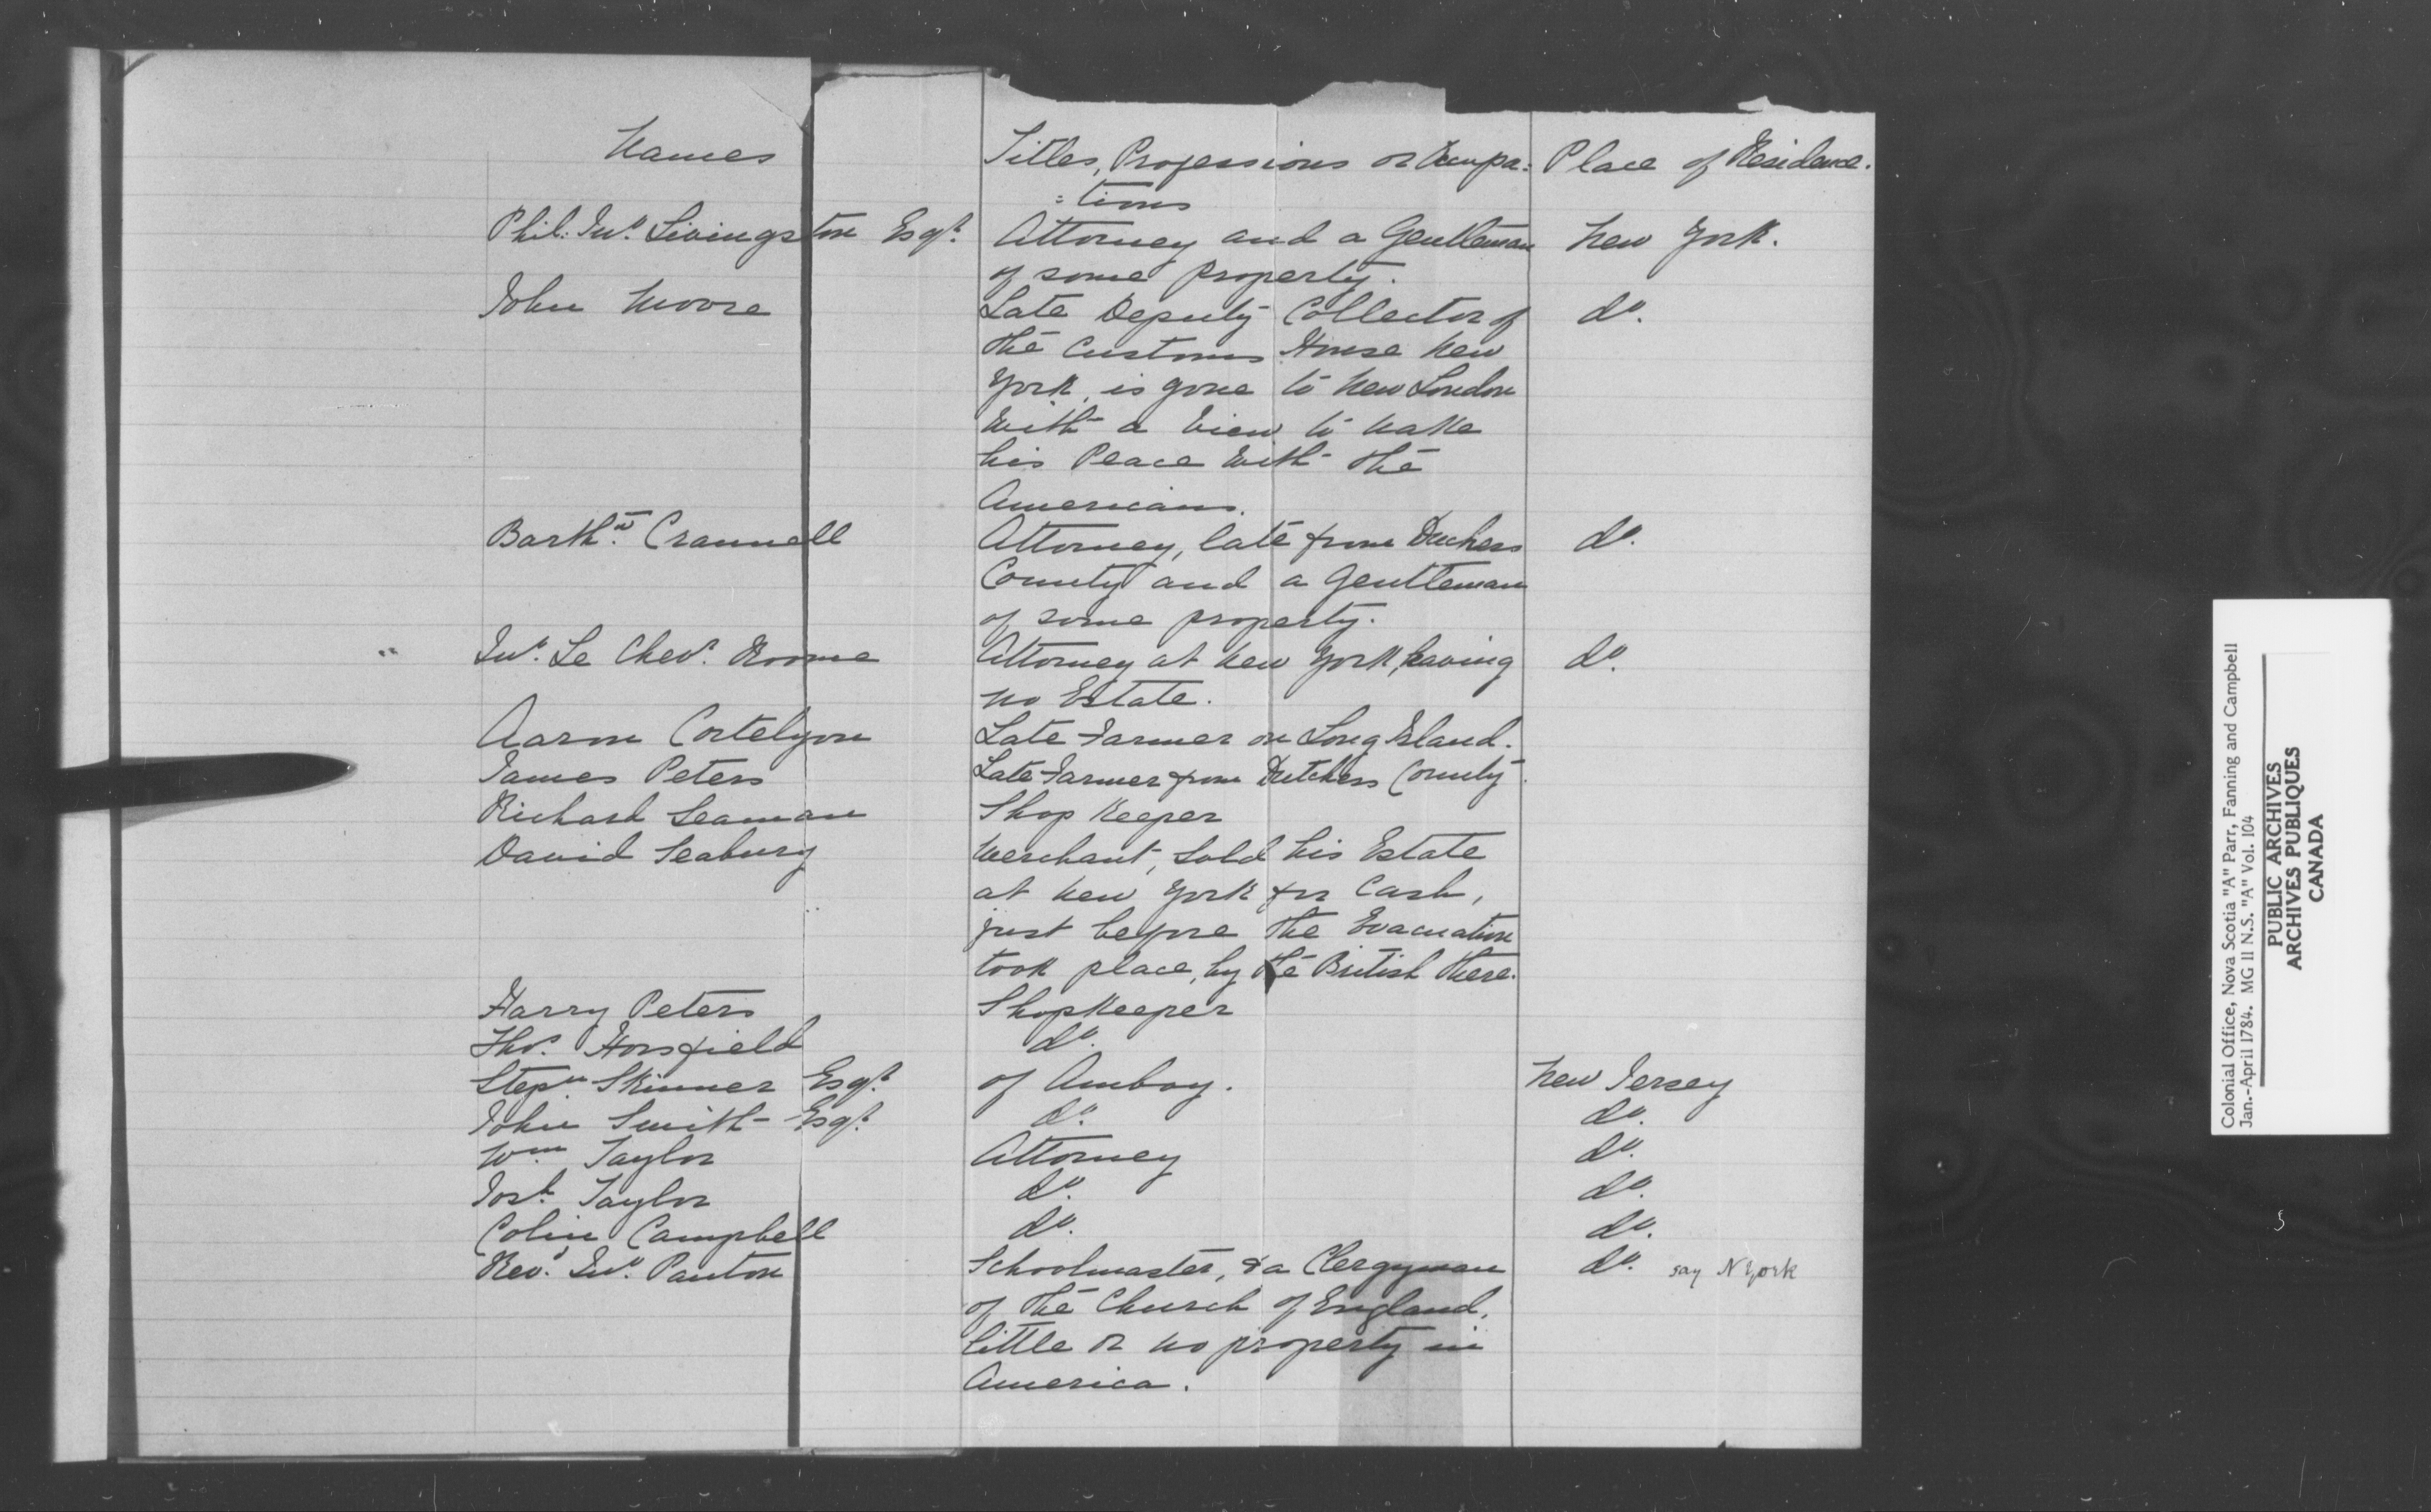 Names Titles, Professions or Occupa= Place of Residence.
=tions
Phil. Jno. Livingston Esqr. Attorney and a Gentleman New York.
of some property.
John Moore Late Deputy Collector of do.
the Customs House New
York, is gone to New London
with a view to make
his Peace with the
Americans.
Barthw. Crannell Attorney, late from Duchess do.
County and a Gentleman
of some property.
" Jno. Le Chevr. Roome Attorney at New York, having do.
no Estate.
Aaron Cortelyou Late Farmer on Long Island.
James Peters Late Farmer from Dutchess County.
Richard Seaman Shop Keeper
David Seabury Merchant, Sold his Estate
at New York for Cash,
just before the Evacuation
took place, by the British there.
Harry Peters Shopkeeper
Thos. Horsfield do.
Stepn. Skinner Esqr. of Amboy. New Jersey
John Smith Esqr. do. do.
Wm. Taylor Attorney do.
Josh. Taylor do. do.
Colin Campbell do. do.
Revd. Jno. Panton Schoolmaster, & a Clergyman do. say N York
of the Church of England,
little or no property in
America.
Colonial Office, Nova Scotia "A" Parr, Fanning and Campbell
Jan.-April 1784. MG 11 N.S. "A" Vol. 104
PUBLIC ARCHIVES
ARCHIVES PUBLIQUES
CANADA